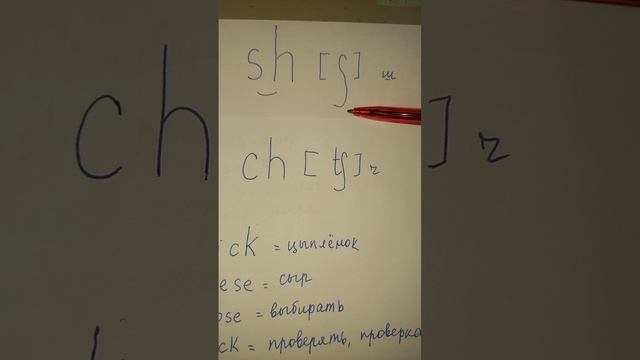 sh [ʃ] ш
ch [tʃ] ч
ick = цыплёнок
ese = сыр
ose = выбирать
ck = проверять, проверка